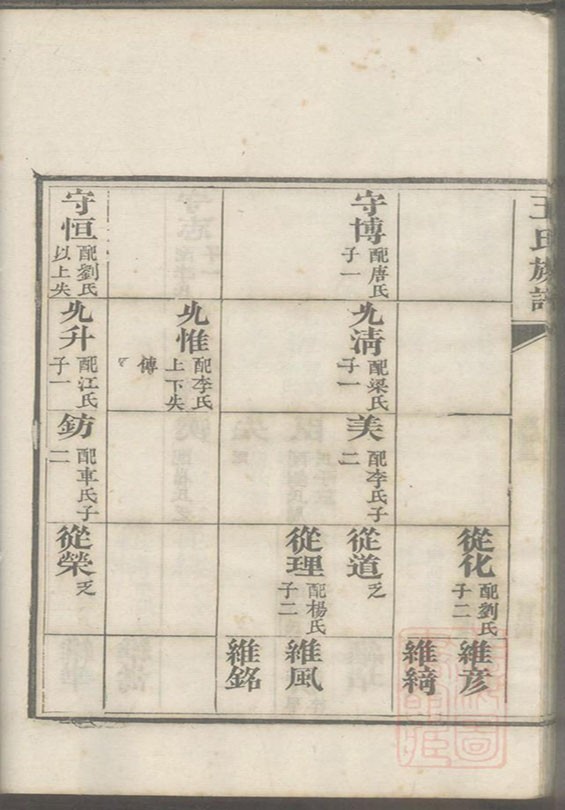 王氏族譜
守博
配唐氏
子一
守恒
配劉氏
以上失
九清
配梁氏
子一
九惟
配李氏
上下失
傳
九升
配江氏
子一
美
配李氏子
二
鈁
配車氏子
二
從化
配劉氏
子二
從道
乏
從理
配楊氏
子二
從榮
乏
維彦
維縞
維風
維銘